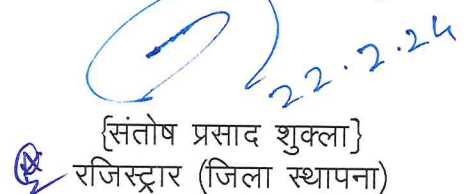 22.2.24
{संतोष प्रसाद शुक्ला}
रजिस्ट्रार (जिला स्थापना)